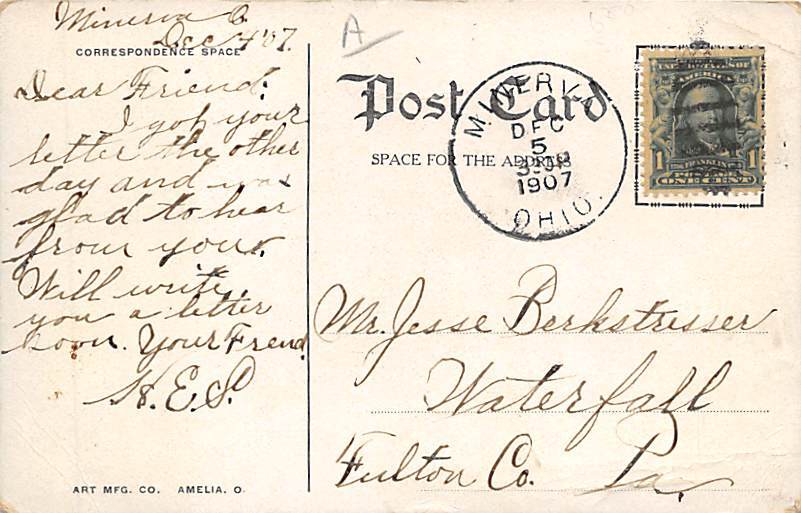 Minerva O.
Dec 4 '07.
CORRESPONDENCE SPACE
Dear Friend:
I got your
letter the other
day and was
glad to hear
from you.
Will write
you a letter
soon. Your Frend
H.E.S.
ART MFG. CO. AMELIA, O.
A
Post Card
SPACE FOR THE ADDRESS
MINERVA
DEC
5
1907
OHIO.
UNITED STATES OF
AMERICA
1 FRANKLIN 1
ONE CENT
Mr. Jesse Berkstresser
Waterfall
Fulton Co. Pa.